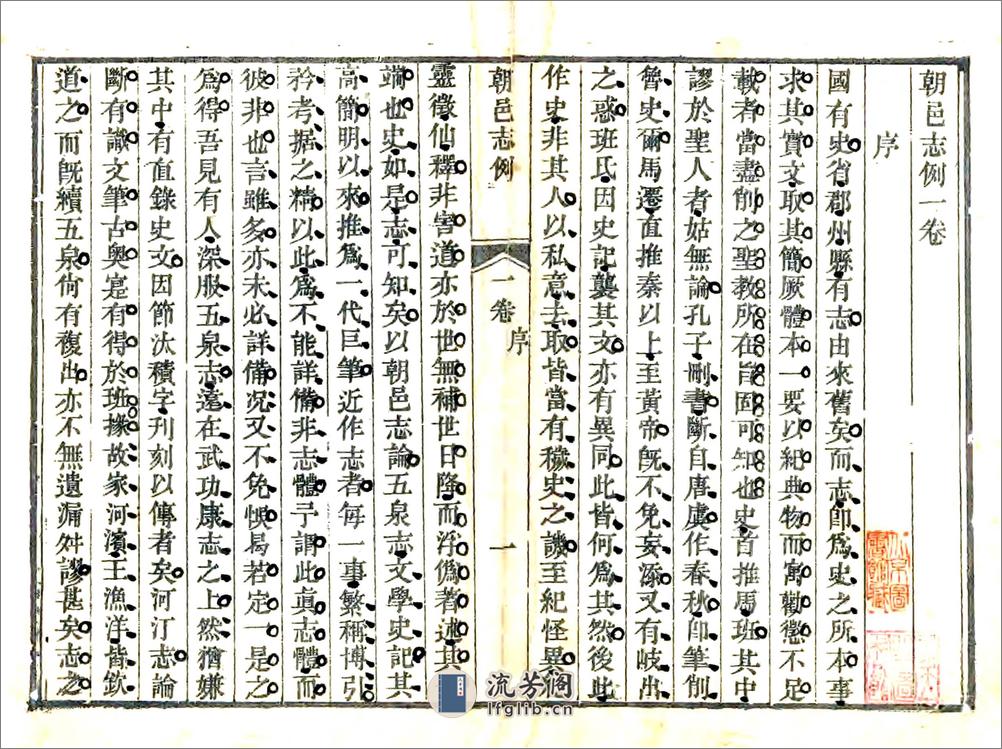 朝邑志例一卷
序
國有史省郡州縣有志由來舊矣而志卽爲史之所本事
求其實文取其簡厥體本一要以紀典物而寓勸懲不足
載者當盡削之聖教所在旨固可知也史首推馬班其中
謬於聖人者姑無論孔子刪書斷自唐虞作春秋卽筆削
魯史爾馬遷直推秦以上至黃帝旣不免妄添又有岐出
之惑班氏因史記襲其文亦有異同此皆何爲其然後此
作史非其人以私意去取皆當有穢史之譏至紀怪異
朝邑志例
一卷
序
一
靈徵仙釋非害道亦於世無補世日降而浮僞著述其
端也史如是志可知矣以朝邑志論五泉志文學史記其
高簡明以來推爲一代巨筆近作志者每一事繁稱博引
矜考据之精以此爲不能詳備非志體予謂此眞志體而
彼非也言雖多亦未必詳備況又不免悞曷若定一是之
爲得吾見有人深服五泉志遠在武功康志之上然猶嫌
其中有直錄史文因節汰積字刋刻以傳者矣河汀志論
斷有識文筆古奧寔有得於班掾故家河濱王漁洋皆欽
道之而旣續五泉尙有複出亦不無遺漏舛謬甚矣志之
流芳阁
lfglib.cn